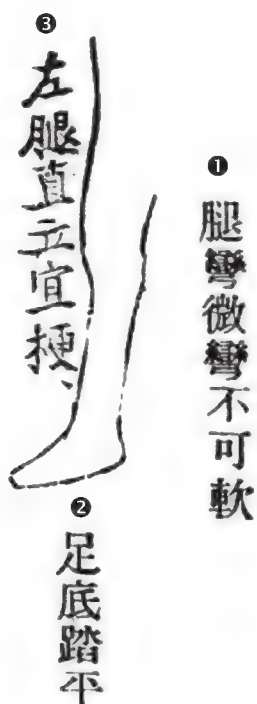 ❶ 腿彎微彎不可軟
❷ 足底踏平
❸ 左腿直立宜挭、